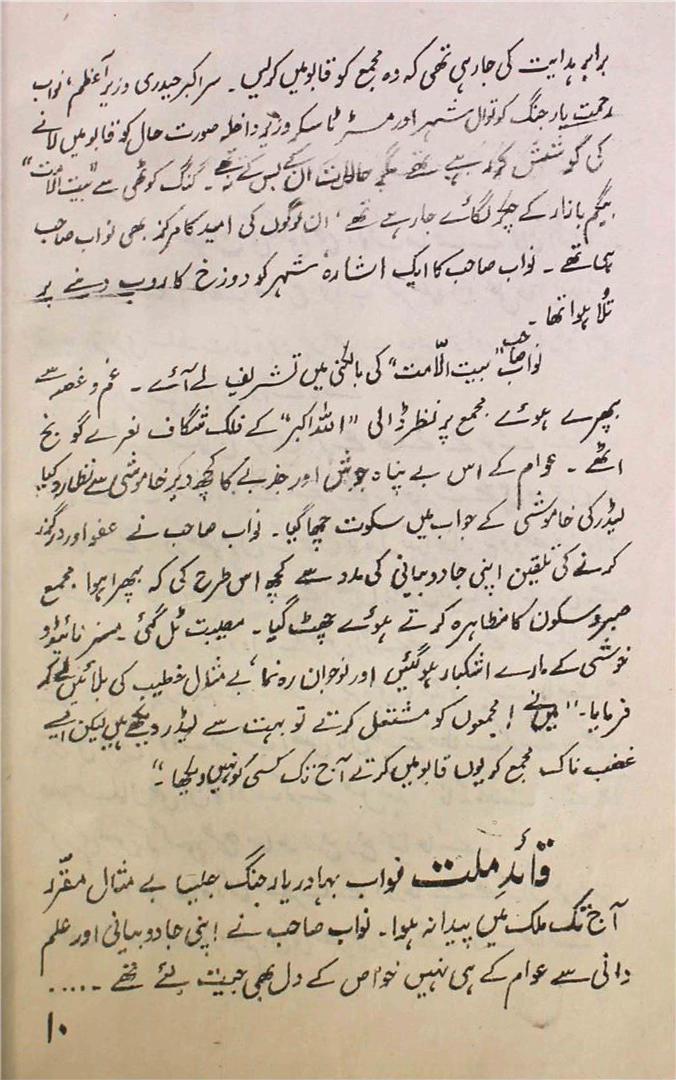 برابر ہدایت کی جا رہی تھی کہ وہ مجمع کو قابو میں کر لیں ۔ سر اکبر حیدری وزیر اعظم ، نواب
رحمت یار جنگ کوتوال شہر اور مسٹر ٹاسکر وزیر داخلہ صورت حال کو قابو میں لانے
کی کوشش کر رہے تھے مگر حالات ان کے بس کے نہ تھے ۔ کنگ کوٹھی سے "بیت الامت"
بیگم بازار کے چکر لگائے جا رہے تھے ، ان لوگوں کی امید کا مرکز بھی نواب صاحب
ہی تھے ۔ نواب صاحب کا ایک اشارہ شہر کو دوزخ کا روپ دینے پر
تُلا ہوا تھا ۔
نواب صاحب "بیت الاّمت" کی بالکنی میں تشریف لے آئے ۔ غم و غصہ سے
بپھرے ہوئے مجمع پر نظر ڈالی "اللہ اکبر" کے فلک شگاف نعرے گونج
اٹھے ۔ عوام کے اس بے پناہ جوش اور جذبے کا کچھ دیر خاموشی سے نظارہ کیا
لیڈر کی خاموشی کے جواب میں سکوت چھا گیا ۔ نواب صاحب نے عفو اور درگزر
کرنے کی تلقین اپنی جادو بیانی کی مدد سے کچھ اس طرح کی کہ بپھرا ہوا مجمع
صبر و سکون کا مظاہرہ کرتے ہوئے چھٹ گیا ۔ مصیبت ٹل گئی ۔ مسز نائیڈو
خوشی کے مارے اشکبار ہو گئیں اور نوجوان رہ نما ، بے مثال خطیب کی بلائیں لے کر
فرمایا ۔ "میں نے مجمعوں کو مشتعل کرتے تو بہت سے لیڈر دیکھے ہیں لیکن ایسے
غضب ناک مجمع کو یوں قابو میں کرتے آج تک کسی کو نہیں دیکھا ۔"
قائدِ ملت نواب بہادر یار جنگ جیسا بے مثال مقرّر
آج تک ملک میں پیدا نہ ہوا ۔ نواب صاحب نے اپنی جادو بیانی اور علم
دانی سے عوام کے ہی نہیں خواص کے دل بھی جیت لئے تھے ۔ ....
۱۰